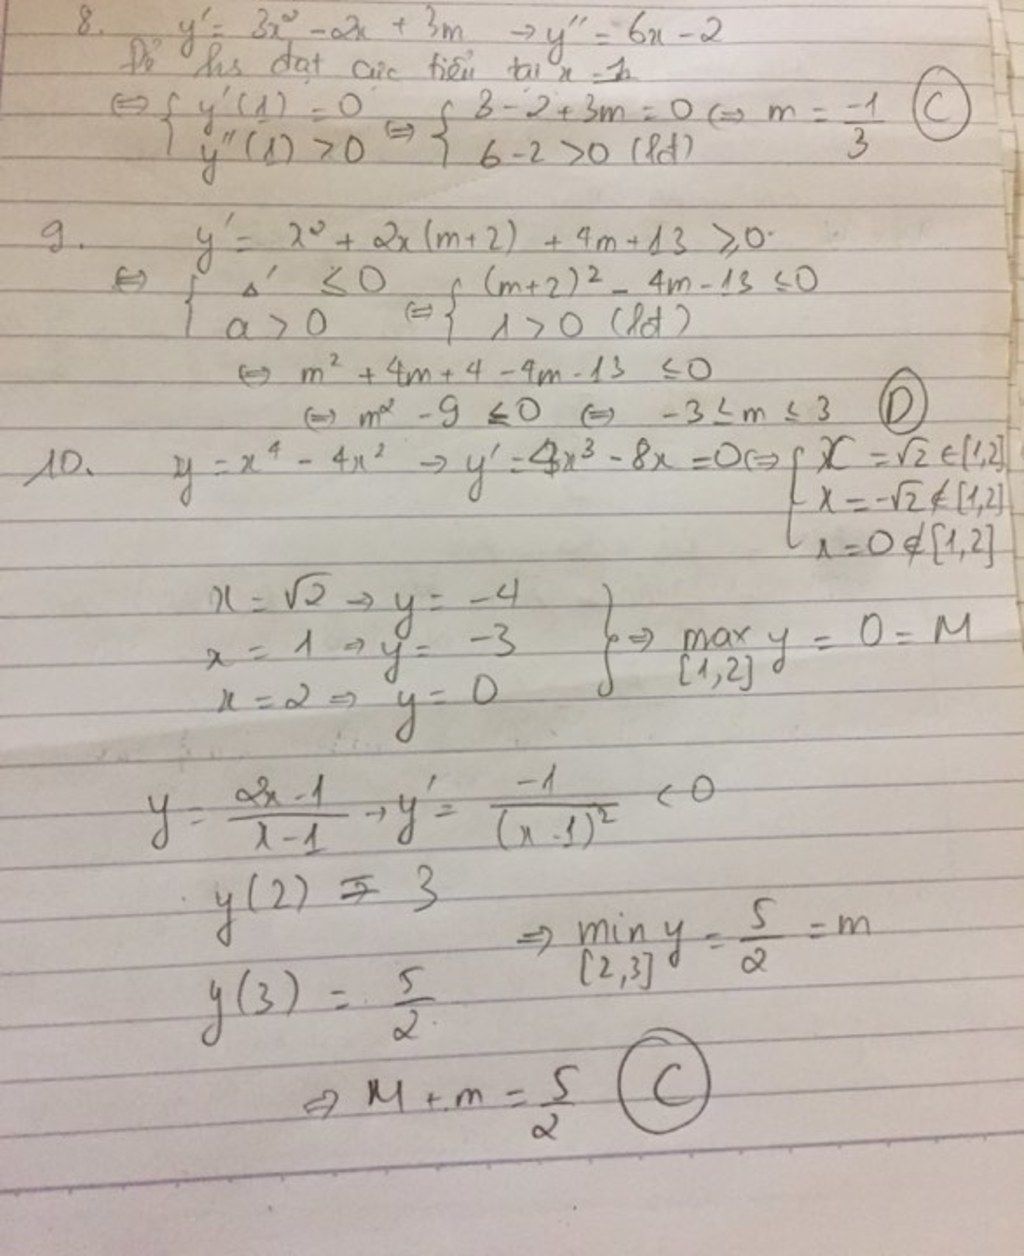 8. y' = 3x² - 2x + 3m → y'' = 6x - 2
Để hs đạt cực tiểu tại x = 1
⇔ { y'(1) = 0 ⇔ { 3 - 2 + 3m = 0 ⇔ m = -1/3 (C)
y''(1) > 0 6 - 2 > 0 (lđ)
9. y' = x² + 2x(m+2) + 4m + 13 ≥ 0
⇔ { Δ' ≤ 0 ⇔ { (m+2)² - 4m - 13 ≤ 0
a > 0 1 > 0 (lđ)
⇔ m² + 4m + 4 - 4m - 13 ≤ 0
⇔ m² - 9 ≤ 0 ⇔ -3 ≤ m ≤ 3 (D)
10. y = x⁴ - 4x² → y' = 4x³ - 8x = 0 ⇔ { x = √2 ∈ [1,2]
x = -√2 ∉ [1,2]
x = 0 ∉ [1,2]
x = √2 → y = -4
x = 1 → y = -3 } ⇒ max y = 0 = M
[1,2]
x = 2 ⇒ y = 0
y = (2x-1)/(x-1) → y' = -1/(x-1)² < 0
y(2) = 3
⇒ min y = 5/2 = m
[2,3]
y(3) = 5/2
⇒ M + m = 5/2 (C)